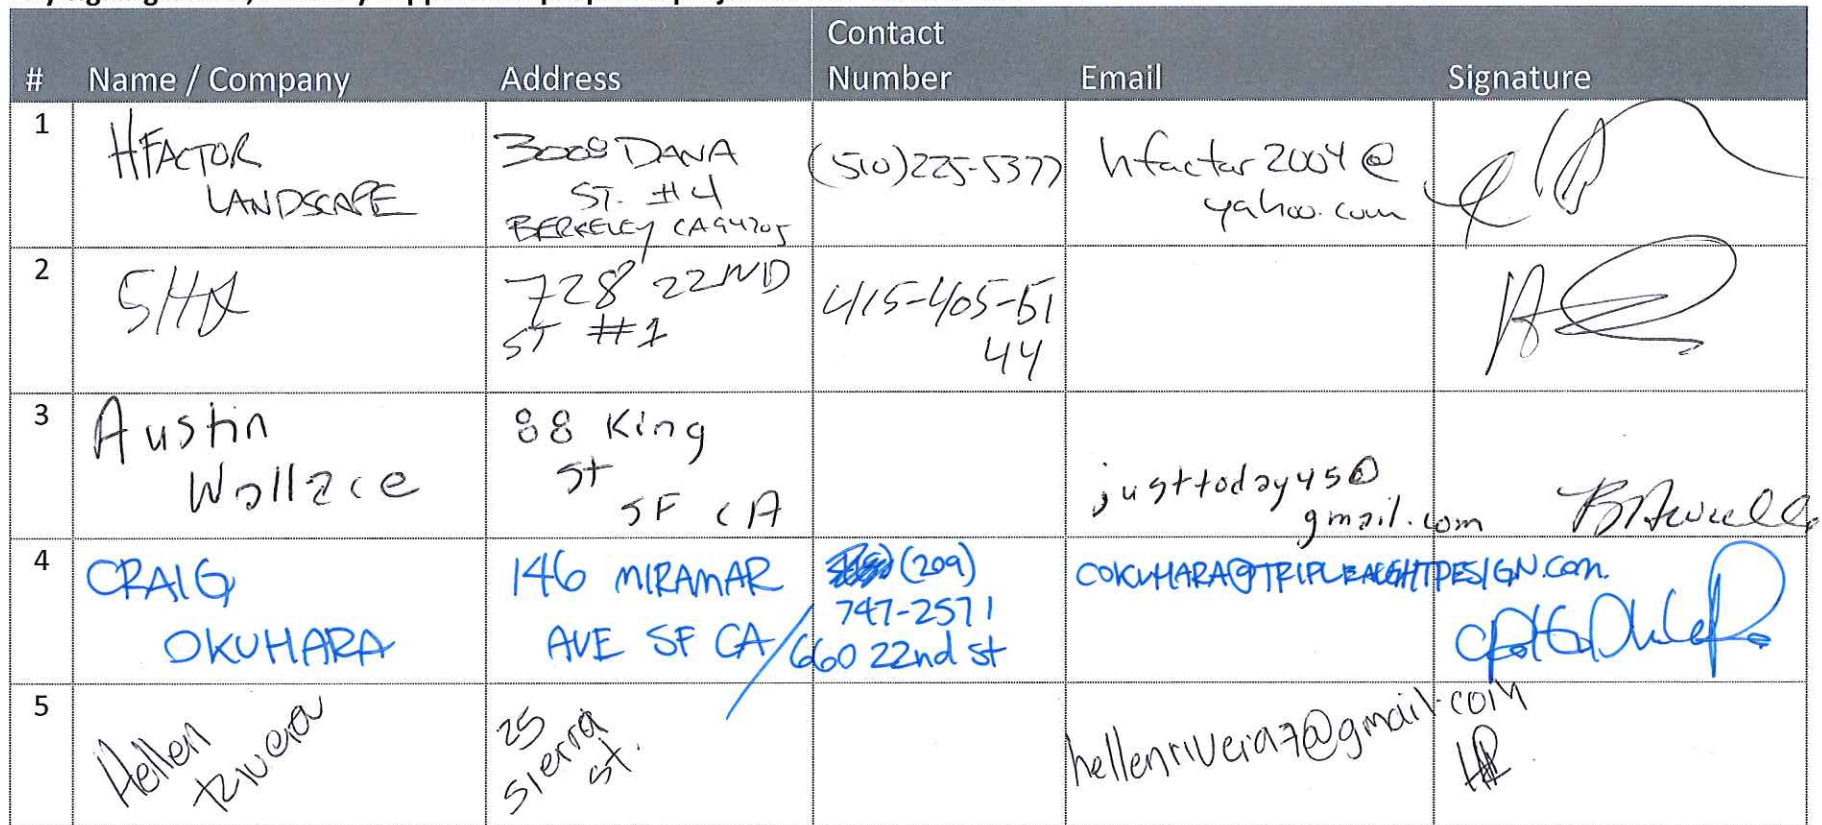 Contact
# Name / Company Address Number Email Signature
1
HFACTOR
LANDSCAPE
3008 DANA
ST. #4
BERKELEY CA 94705
(510)225-5377
hfactor2004@
yahoo.com
2
728 22ND
ST #1
415-405-51
44
3
Austin
Wallace
88 King
St
SF CA
justtoday45@
gmail.com
4
CRAIG
OKUHARA
146 MIRAMAR
AVE SF CA/
(209)
747-2571
660 22nd st
COKUHARA@TRIPLEAUGHTDESIGN.COM.
5
Hellen
Rivera
25
Sierra
st.
hellenrivera7@gmail.com
HR